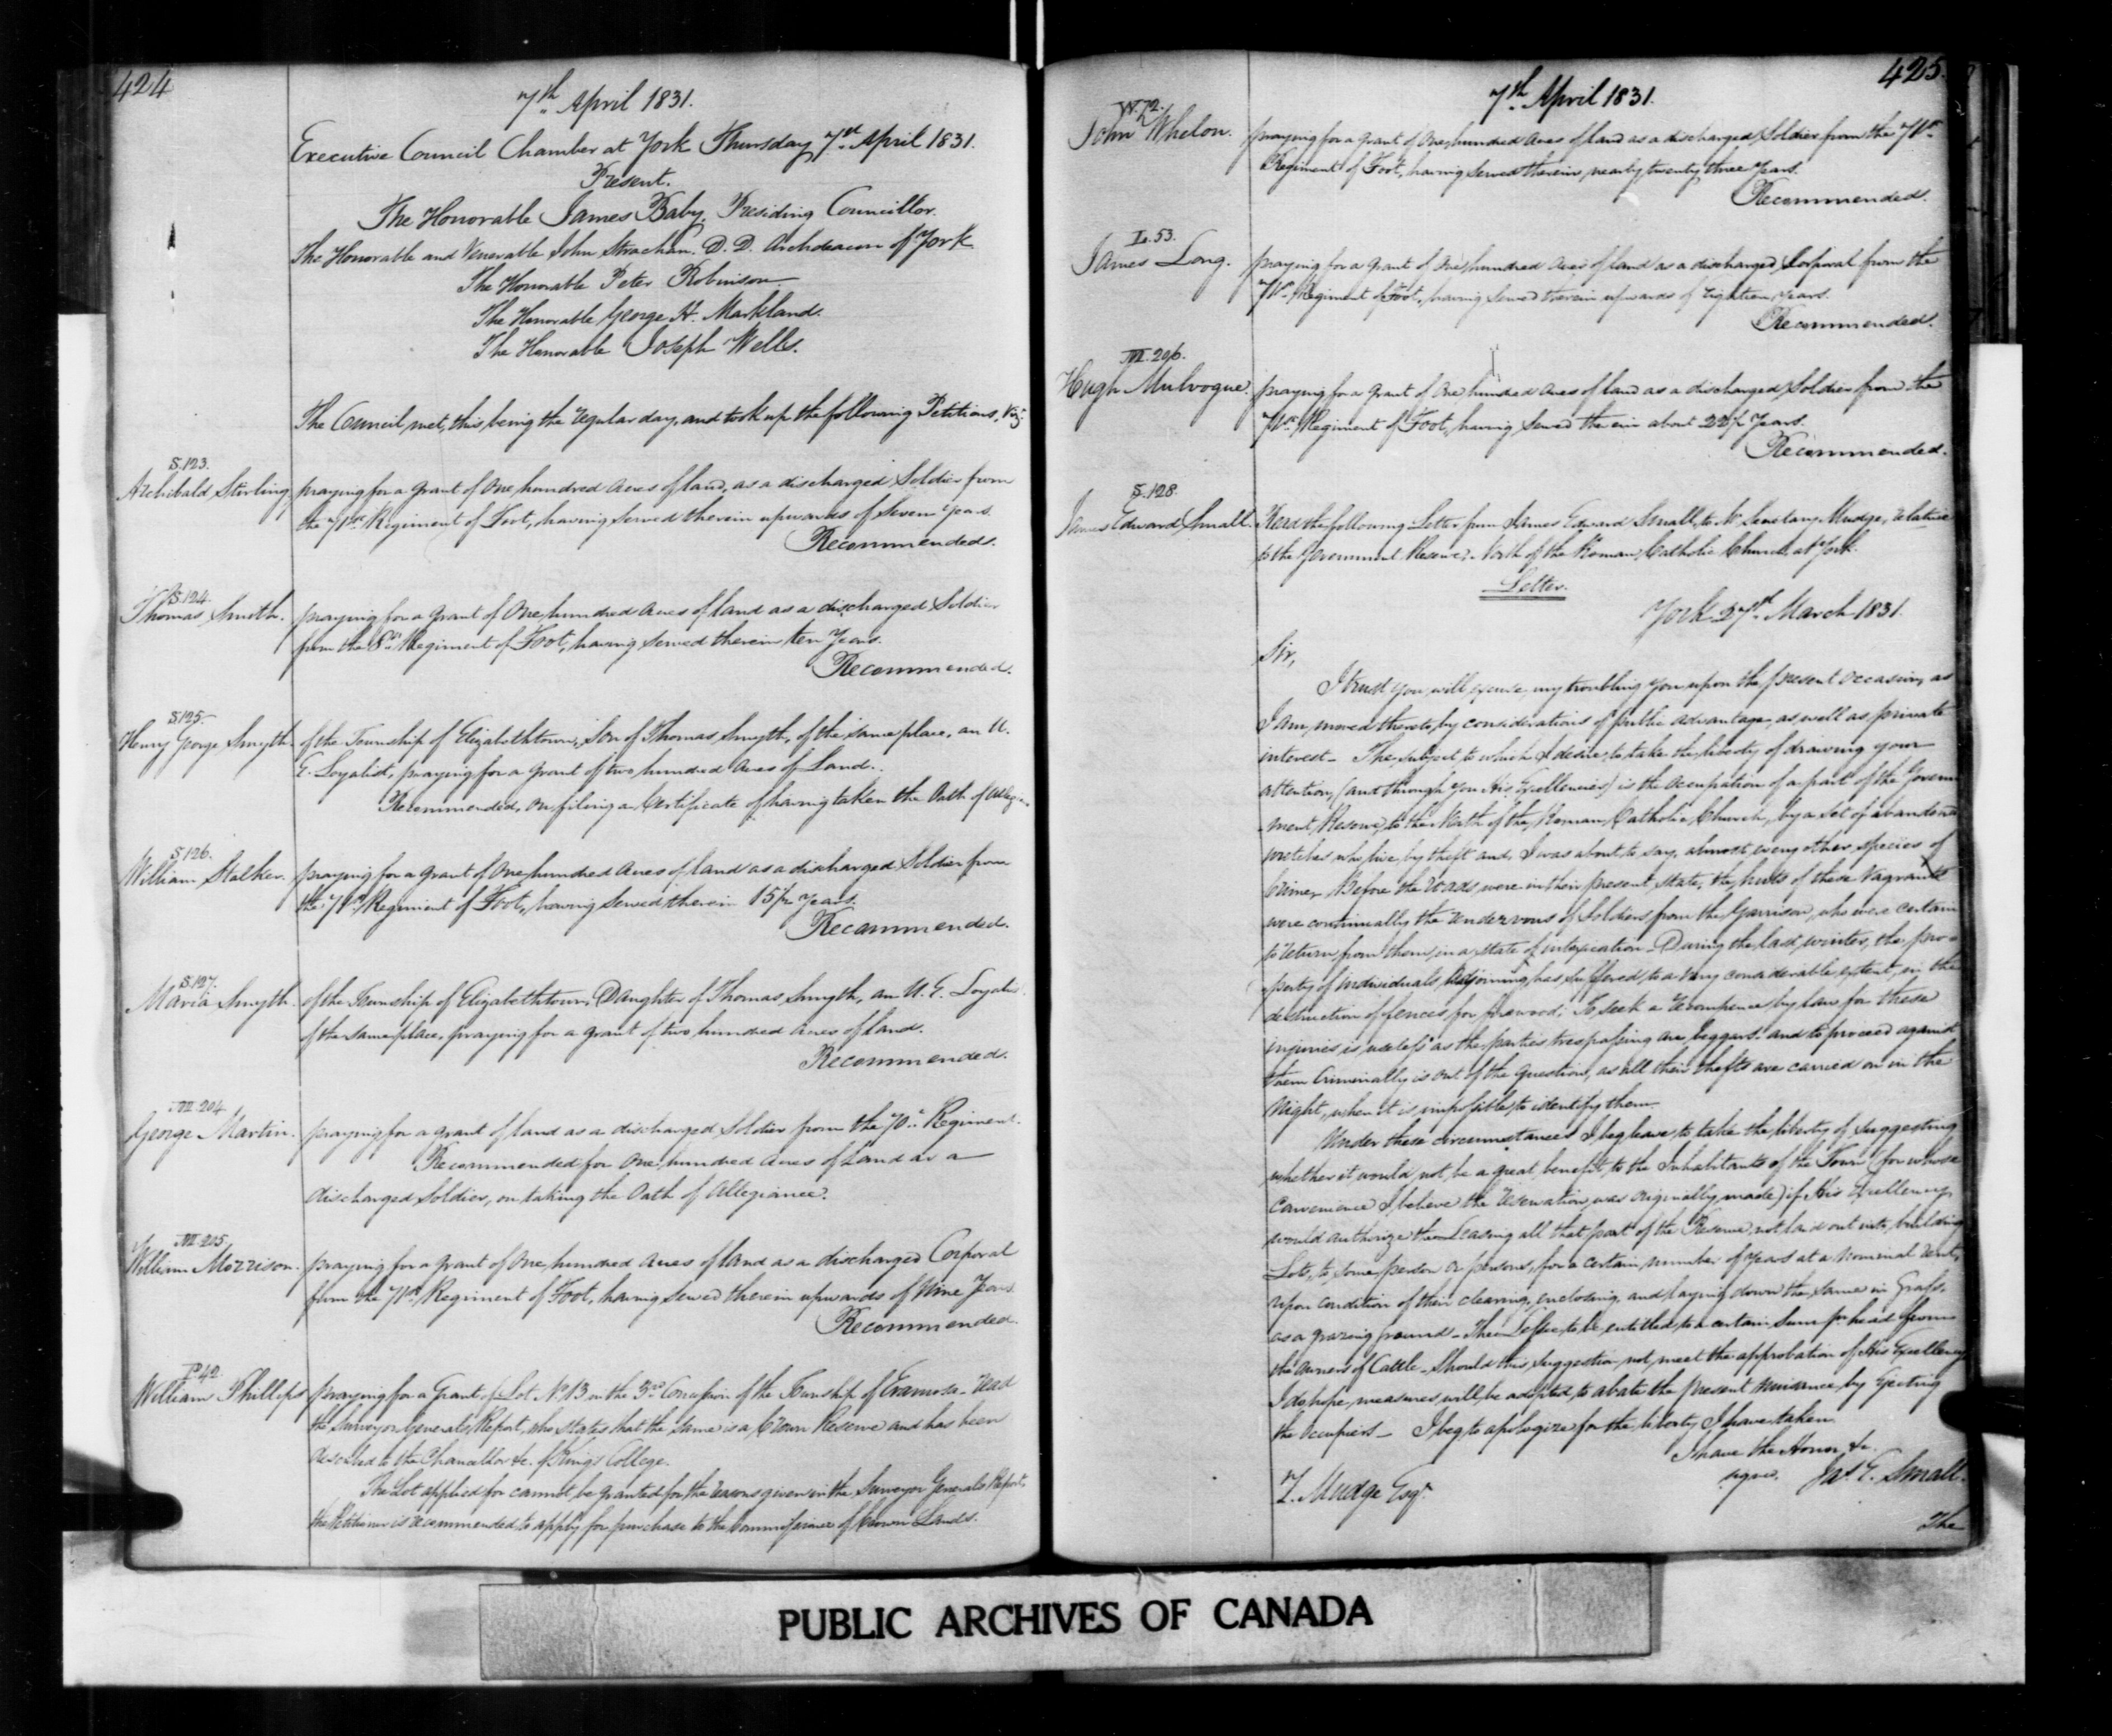 424
7th April 1831.
Executive Council Chamber at York Thursday 7th April 1831.
Present.
The Honorable James Baby, Presiding Councillor.
The Honorable and Venerable John Strachan. D. D. Archdeacon of York
The Honorable Peter Robinson
The Honorable George H. Markland.
The Honorable Joseph Wells.
The Council met, this being the regular day, and took up the following Petitions, Viz:
S.123.
Archibald Stirling praying for a grant of One hundred Acres of land, as a discharged Soldier from
the 71st Regiment of Foot, having served therein upwards of Seven Years.
Recommended.
S.124.
Thomas Smith. praying for a grant of One hundred Acres of land as a discharged Soldier
from the 8th Regiment of Foot, having served therein ten Years.
Recommended.
S.125.
Henry George Smyth. of the Township of Elizabethtown, Son of Thomas Smyth, of the same place, an U.
E. Loyalist, praying for a grant of two hundred Acres of Land.
Recommended, on filing a Certificate of having taken the Oath of
S.126.
William Stalker. praying for a grant of One hundred Acres of land as a discharged Soldier from
the 71st Regiment of Foot, having served therein 15½ Years.
Recommended.
S.127.
Maria Smyth. of the Township of Elizabethtown, Daughter of Thomas Smyth, an U. E. Loyalist
of the same place, praying for a grant of two hundred Acres of land.
Recommended.
M.204
George Martin. praying for a grant of land as a discharged Soldier from the 70th Regiment.
Recommended for One hundred Acres of Land as a
discharged Soldier, on taking the Oath of Allegiance.
M.205.
William Morrison. praying for a grant of One hundred Acres of land as a discharged Corporal
from the 71st Regiment of Foot, having served therein upwards of Nine Years
Recommended.
P.42.
William Phillips praying for a Grant of Lot No. 13 in the 3rd Concession of the Township of Eramosa - Read
the Surveyor Generals Report, who states that the same is a Crown Reserve and has been
deeded to the Chancellor &c. of Kings College.
The Lot applied for cannot be granted for the reasons given in the Surveyor Generals Report,
the Petitioner is recommended to apply for purchase to the Commissioner of Crown Lands.
425.
7th April 1831.
W.72.
John Whelon. praying for a grant of One hundred Acres of land as a discharged Soldier from the 71st
Regiment of Foot, having served therein, nearly twenty three Years.
Recommended.
L.53.
James Long. praying for a grant of One hundred Acres of land as a discharged Corporal from the
71st Regiment of Foot, having served therein upwards of Eighteen Years.
Recommended.
M.206.
Hugh Mulvogue. praying for a grant of One hundred Acres of land as a discharged Soldier from the
71st Regiment of Foot, having served therein about 22½ Years.
Recommended.
S.128.
James Edward Small. Read the following Letter from James Edward Small, to Mr Secretary Mudge, relative
to the Government Reserve, North of the Roman Catholic Church at York.
Letter.
York 27th March 1831.
Sir,
I trust you will excuse my troubling you upon the present occasion, as
I am moved thereto, by considerations of public advantage, as well as private
interest - The subject to which I desire, to take the liberty of drawing your
attention, (and through you His Excellencies) is the occupation of a part of the Govern
-ment Reserve, to the North of the Roman Catholic Church, by a set of abandoned
wretches who live by theft and, I was about to say, almost every other species of
Crime. Before the roads were in their present State, the huts of these Vagrants
were continually the rendezvous of Soldiers from the Garrison, who were certain
to return from them in a state of intoxication - During the last winter, the pro-
-perty of individuals adjoining, has suffered to a very considerable extent, in the
destruction of fences for firewood; To seek a recompence by law for these
injuries is useless as the parties trespassing are beggars, and to proceed against
them Criminally is out of the question, as all their thefts are carried on in the
Night, when it is impossible, to identify them.
Under these circumstances I beg leave to take the liberty of suggesting
whether it would not be a great benefit, to the Inhabitants of the Town (for whose
Convenience I believe the reservation was originally made) if His Excellency
would authorize the Leasing all that part of the Reserve, not laid out into building
Lots, to some person or persons, for a certain number of years at a nominal rent,
upon condition of their clearing, enclosing, and laying down the same in Grass,
as a grazing ground - The Lessee to be entitled to a certain Sum pr head from
the owners of Cattle - Should this suggestion not meet the approbation of His Excellency
I do hope, measures will be adopted, to abate the present nuisance by Ejecting
the occupiers - I beg to apologize for the liberty I have taken.
I have the Honor &c.
signed. Jas. E. Small.
Z. Mudge Esqr.
The
PUBLIC ARCHIVES OF CANADA